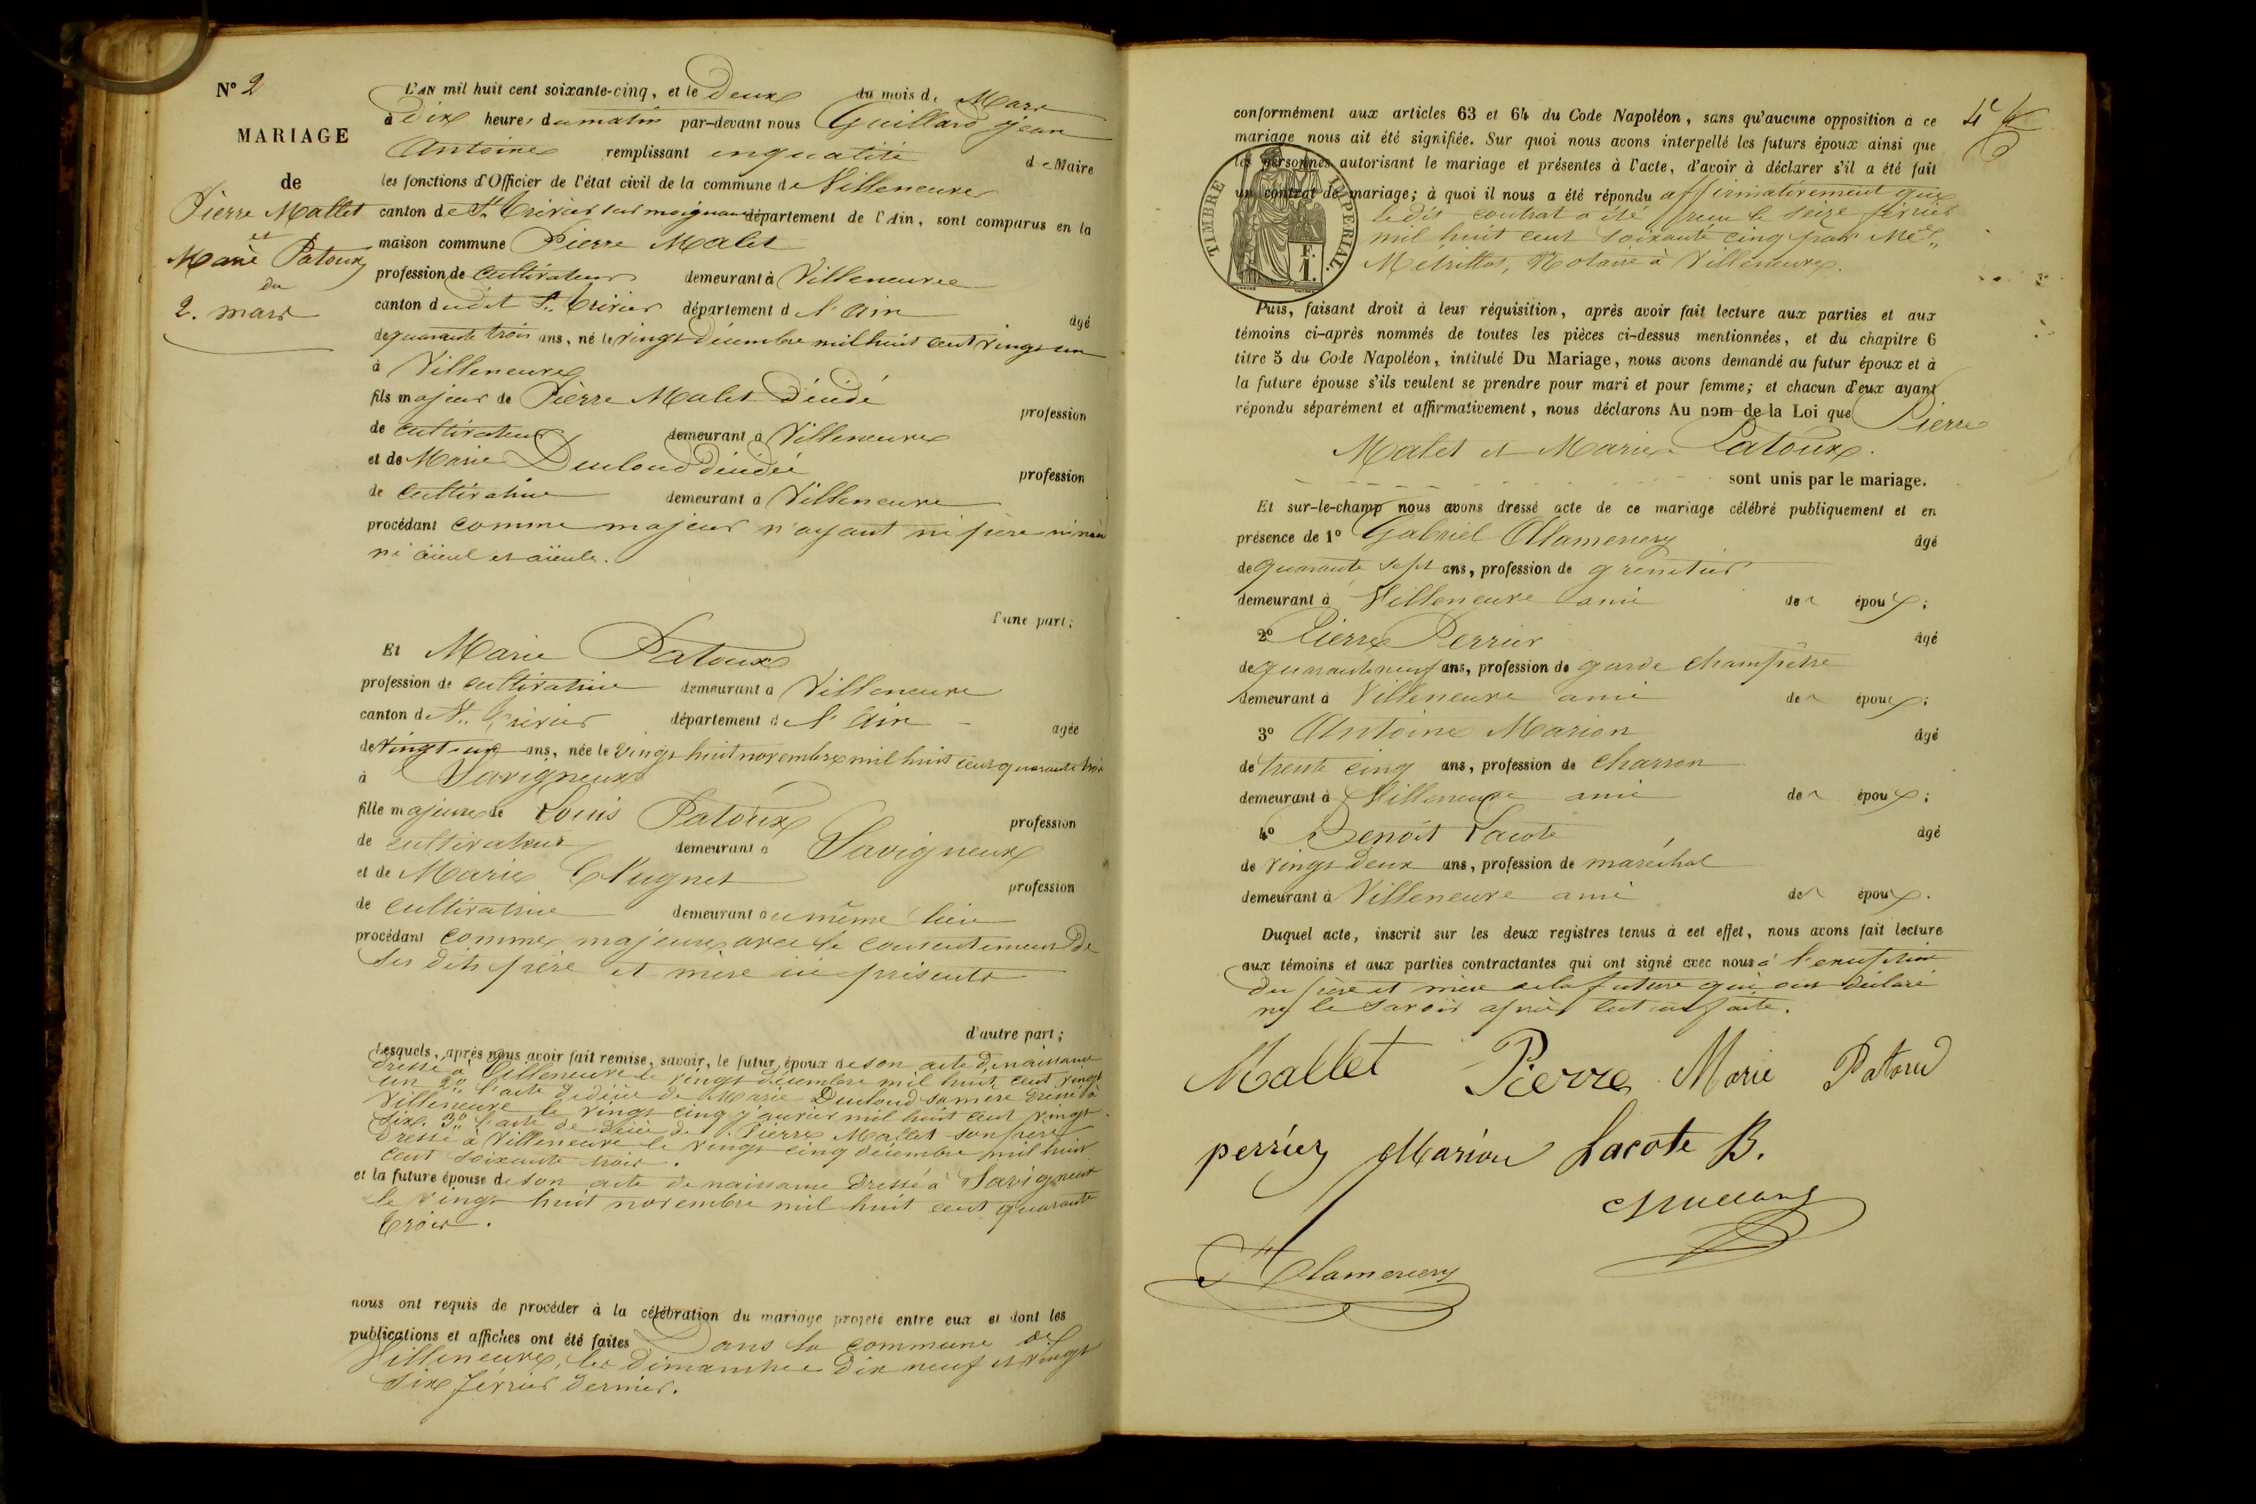 N° 2
MARIAGE
de
Pierre Mallet
et
Marie Patoux
du
2. mars
L'AN mil huit cent soixante-cinq, et le Deux du mois de Mars
à Dix heures du matin par-devant nous Guillard Jean
Antoine remplissant en qualité de Maire
les fonctions d'Officier de l'état civil de la commune de Villeneuve
canton de St. Trivier sur moignans département de l'Ain, sont comparus en la
maison commune Pierre Malet
profession de cultivateur demeurant à Villeneuve
canton dudit St. Trivier département de l'Ain âgé
de quarante trois ans, né le vingt Décembre mil huit cent vingt un
à Villeneuve
fils majeur de Pierre Malet Décédé profession
de cultivateur demeurant à Villeneuve
et de Marie Ducloud décédée profession
de cultivatrice demeurant à Villeneuve
procédant comme majeur n'ayant ni père ni mère
ni aïeul et aïeule.
d'une part;
Et Marie Patoux
profession de cultivatrice demeurant à Villeneuve
canton de St. Trivier département de l'Ain âgée
de vingt un ans, née le vingt huit novembre mil huit cent quarante trois
à Savigneux
fille majeure de Louis Patoux profession
de cultivateur demeurant à Savigneux
et de Marie profession
de cultivatrice demeurant au même lieu
procédant comme majeure avec le consentement De
ses dits père et mère ici présents
d'autre part;
Lesquels, après nous avoir fait remise, savoir, le futur époux de son acte De naissance
dressé à Villeneuve le vingt décembre mil huit cent vingt
un 2° l'acte de décès de Marie Ducloud sa mère dressé à
Villeneuve le vingt cinq janvier mil huit cent vingt
six. 3° l'acte de décès de Pierre Mallet son père
Dressé à Villeneuve le vingt cinq décembre mil huit
cent soixante trois.
et la future épouse de son acte de naissance Dressé à Savigneux
le vingt huit novembre mil huit cent quarante
trois.
nous ont requis de procéder à la célébration du mariage projeté entre eux et dont les
publications et affiches ont été faites Dans la commune de
Villeneuve, les Dimanches Dix neuf et vingt
six février dernier.
4e
conformément aux articles 63 et 64 du Code Napoléon, sans qu'aucune opposition à ce
mariage nous ait été signifiée. Sur quoi nous avons interpellé les futurs époux ainsi que
les personnes autorisant le mariage et présentes à l'acte, d'avoir à déclarer s'il a été fait
un contrat de mariage; à quoi il nous a été répondu affirmativement que
le dit contrat a été reçu le seize février
mil huit cent soixante cinq par Me
Notaire à Villeneuve.
TIMBRE IMPERIAL.
F.
1.
Puis, faisant droit à leur réquisition, après avoir fait lecture aux parties et aux
témoins ci-après nommés de toutes les pièces ci-dessus mentionnées, et du chapitre 6
titre 5 du Code Napoléon, intitulé Du Mariage, nous avons demandé au futur époux et à
la future épouse s'ils veulent se prendre pour mari et pour femme; et chacun d'eux ayant
répondu séparément et affirmativement, nous déclarons Au nom de la Loi que Pierre
Malet et Marie Patoux.
sont unis par le mariage.
Et sur-le-champ nous avons dressé acte de ce mariage célébré publiquement et en
présence de 1° Gabriel Clamerery âgé
de quarante sept ans, profession de
demeurant à Villeneuve ami des époux;
2° Pierre Perrier âgé
de quarante neuf ans, profession de garde champêtre
demeurant à Villeneuve ami des époux;
3° Antoine Marion âgé
de trente cinq ans, profession de charron
demeurant à Villeneuve ami des époux;
4° Benoit Lacote âgé
de vingt Deux ans, profession de maréchal
demeurant à Villeneuve ami des époux.
Duquel acte, inscrit sur les deux registres tenus à cet effet, nous avons fait lecture
aux témoins et aux parties contractantes qui ont signé avec nous à l'exception
des père et mère de la future qui ont déclaré
ne le savoir après lecture faite.
Mallet Pierre Marie Patoud
perrier Marion Lacote B.
Guillard
Clamerery